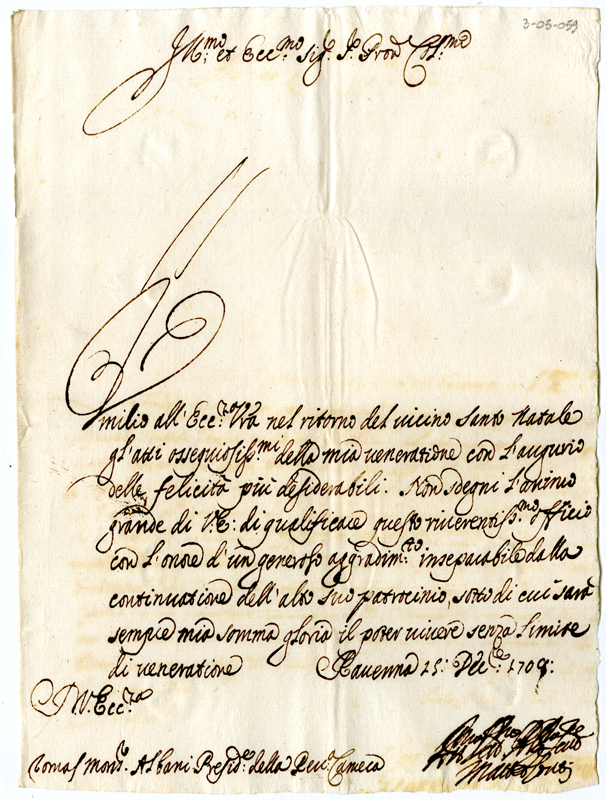 3-05-059
Ill:mo et Ecc:mo Sig.r P.ron Col:mo
Umilio all'Ecc:za Vra nel ritorno del vicino Santo Natale
gl'atti ossequiosiss:mi della mia veneratione con l'augurio
delle felicità più desiderabili. Non sdegni l'animo
grande di V.E: di qualificare questo riverentiss:mo officio
con l'onore d'un generoso aggradim:to inseparabile dalla
continuatione dell'alto suo patrocinio, sotto di cui sarà
sempre mia somma gloria il poter vivere senza limite
di veneratione Ravenna 15: Dec:e 1708:
D V. Ecc:za
Mons.r Albani Presid:e della Rev: Camera